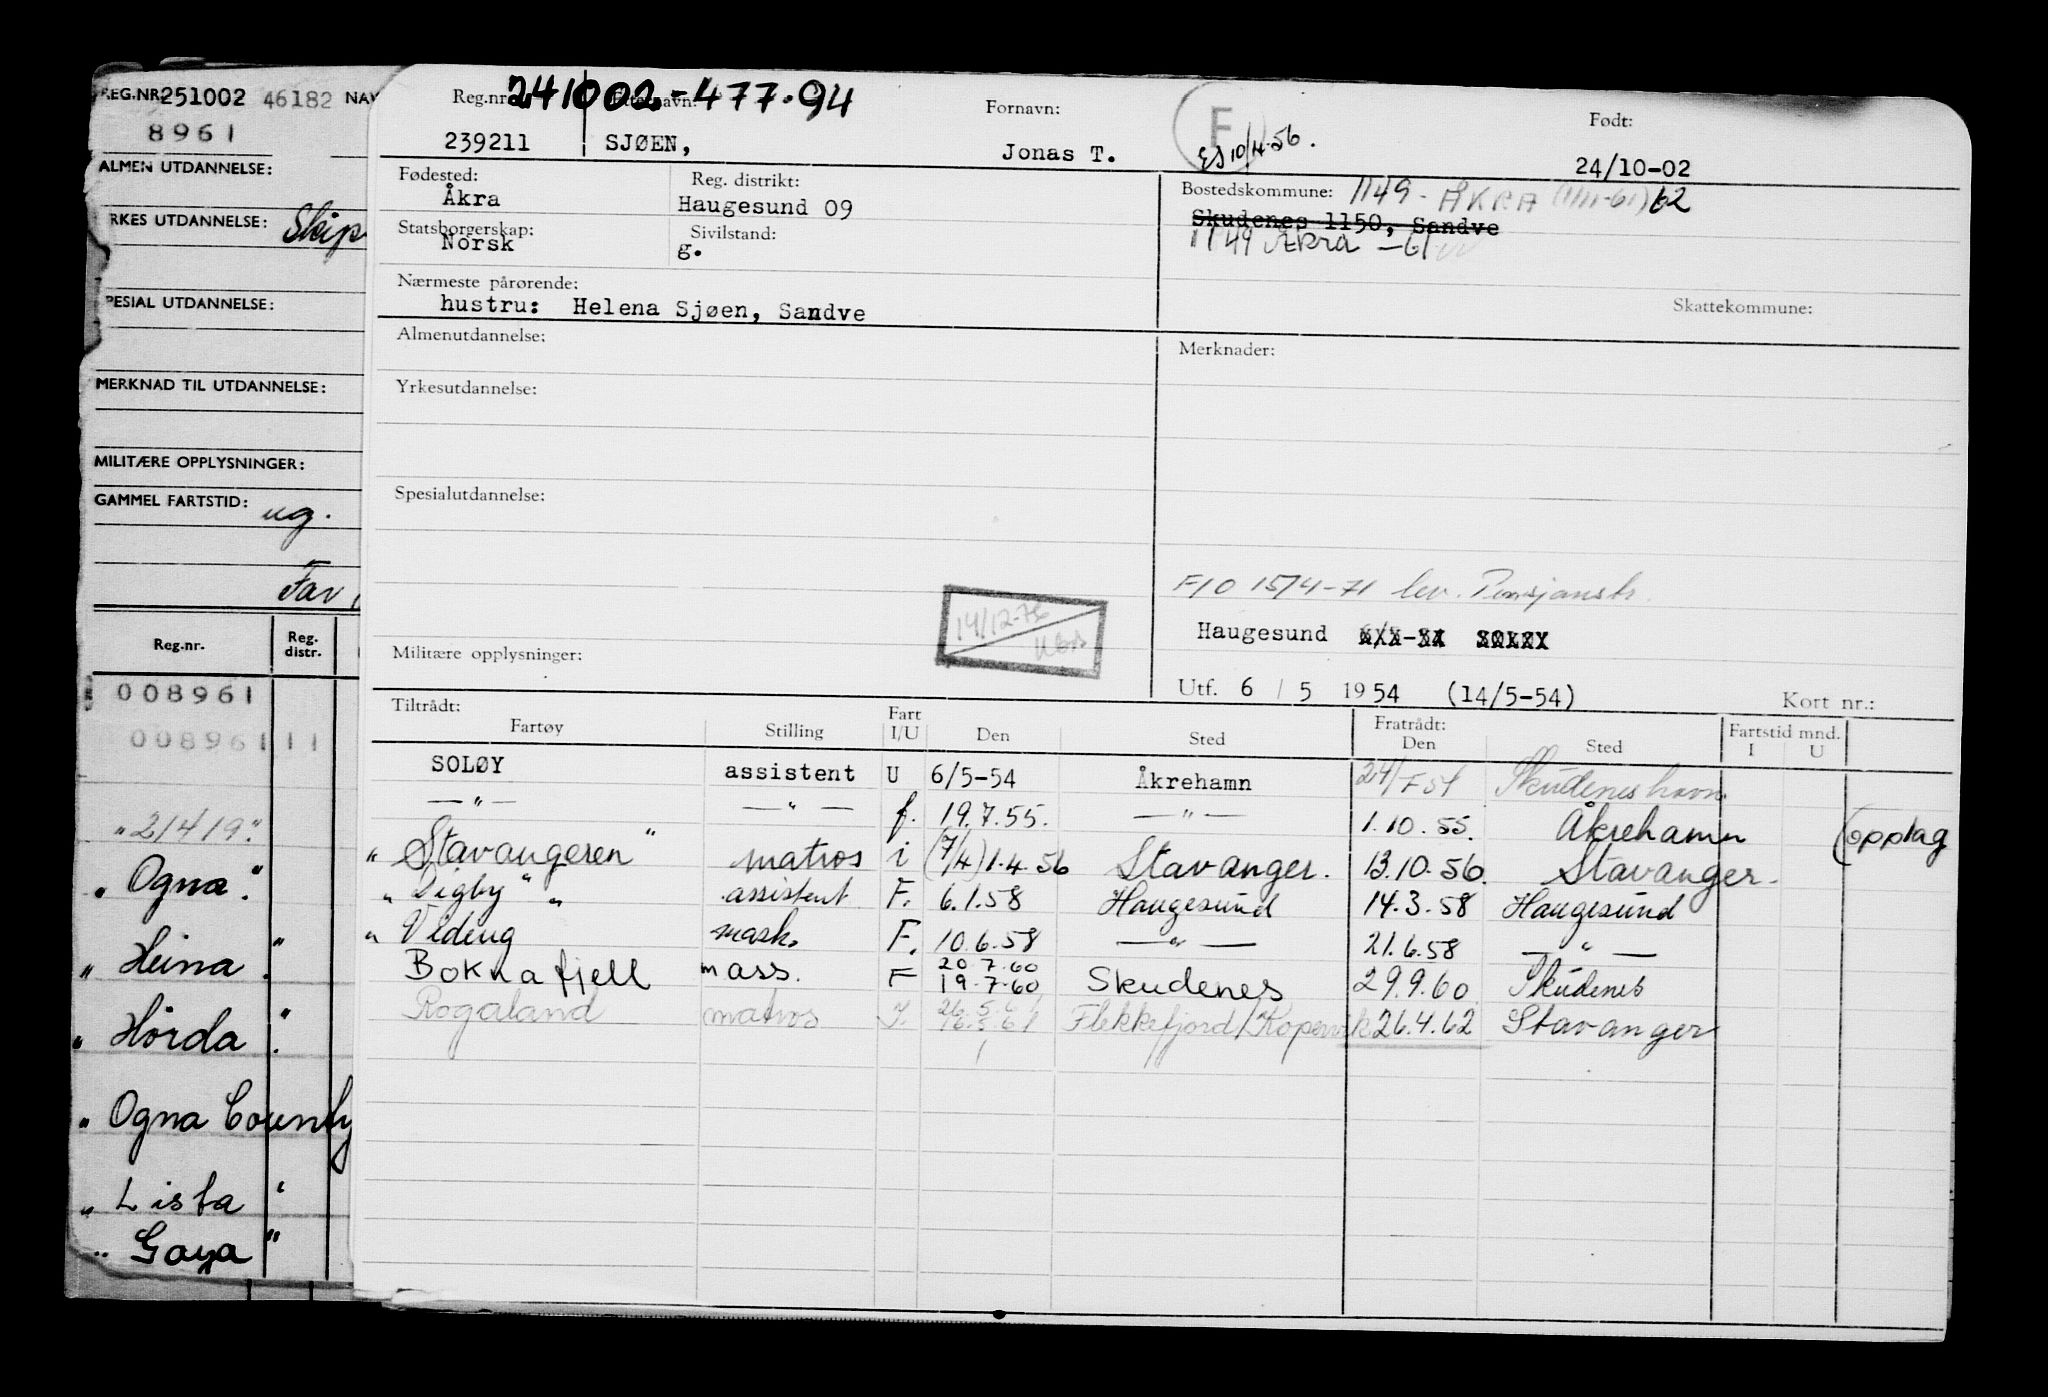 REG.NR. 251002 46182 NAV
8961
ALMEN UTDANNELSE:
RKES UTDANNELSE: Skip
PESIAL UTDANNELSE:
MERKNAD TIL UTDANNELSE:
MILITÆRE OPPLYSNINGER:
GAMMEL FARTSTID: ug.
Far
Reg.nr. Reg. distr.
008961
008961 11
"21419"
"Ogna"
"Heina"
"Horda"
"Ogna County
"Lista"
"Goya"
241002-477.94
Reg.nr. Etternavn: Fornavn: Født:
239211 SJØEN, Jonas T. 24/10-02
F
10/4-56.
Fødested: Reg. distrikt: Bostedskommune: 1149 - ÅKRA (1/11-61) 62
Åkra Haugesund 09 Skudenes 1150, Sandve
Statsborgerskap: Sivilstand: 1149 Åkra -61
Norsk g.
Nærmeste pårørende: Skattekommune:
hustru: Helena Sjøen, Sandve
Almenutdannelse: Merknader:
Yrkesutdannelse:
Spesialutdannelse:
F/O 15/4-71 lev. Pensjonstr.
14/12-76
Haugesund
Militære opplysninger:
Utf. 6 / 5 1954 (14/5-54) Kort nr.:
Tiltrådt: Fratrådt: Fartstid mnd.
Fartøy Stilling Fart I/U Den Sted Den Sted I U
SOLØY assistent U 6/5-54 Åkrehamn Skudeneshavn
—"— —"— f. 19.7.55. —"— 1.10.55. Åkrehamn (opplag
"Stavangeren" matros i (7/4) 1.4.56 Stavanger. 13.10.56. Stavanger.
"Digby" assistent F. 6.1.58 Haugesund 14.3.58 Haugesund
"Videug mask. F. 10.6.58 —"— 21.6.58 —"—
20.7.60
Boknafjell mass. F 19.7.60 Skudenes 29.9.60 Skudenes
Rogaland matros I. 16.5.61 Flekkefjord/Kopervik 26.4.62 Stavanger